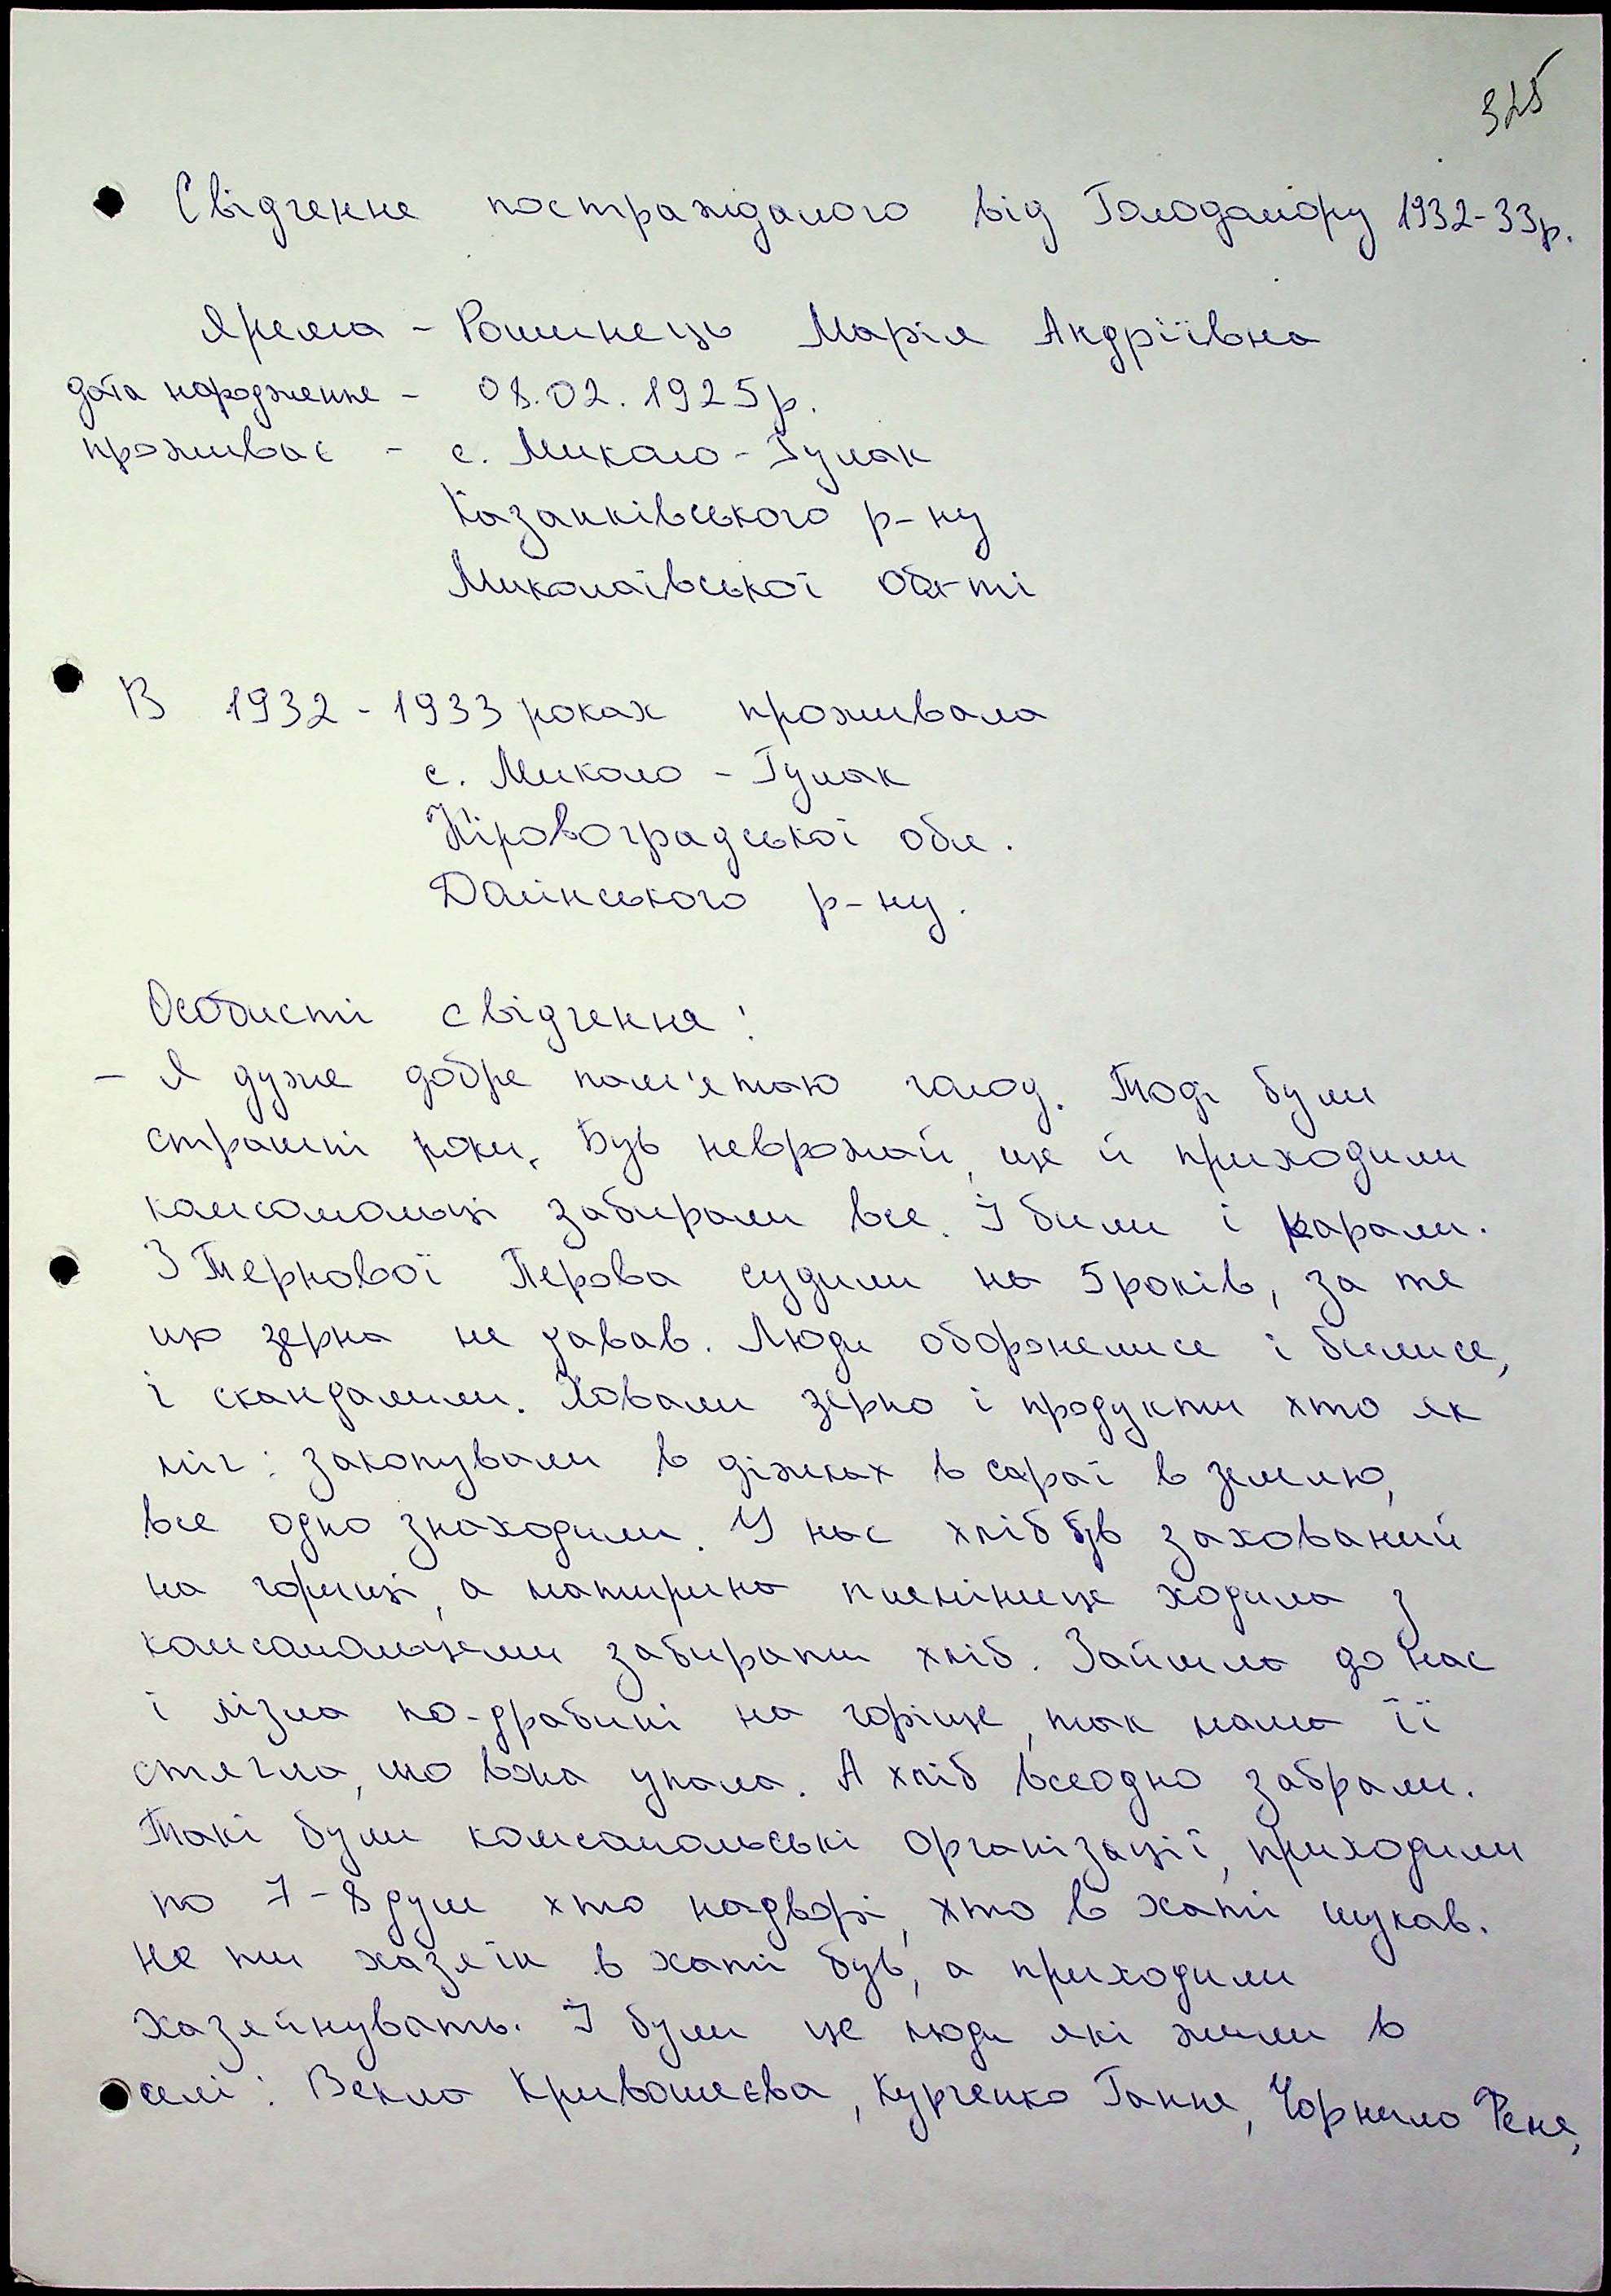 325
Свідчення постраждалого від Голодомору 1932-33р.
Ярема - Рошинець Марія Андріївна
дата народження - 08.02.1925р.
проживає - с. Миколо-Гулак
Казанківського р-ну
Миколаївської обл-ті
В 1932-1933 роках проживала
с. Миколо-Гулак
Кіровоградської обл.
Долінського р-ну.
Особисті свідчення:
- Я дуже добре пам'ятаю голод. Тоді були
страшні роки. Був неврожай, ще й приходили
комсомольці забирали все. І били і карали.
З Тернової Перова судили на 5 років, за те
що зерна не давав. Люди оборонялися і билися,
і скандалили. Ховали зерно і продукти хто як
міг: закопували в діжках в сараї в землю,
все одно знаходили. У нас хліб був захований
на горищі, а матирина племінниця ходила з
комсомольцями забирати хліб. Зайшла до нас
і лізла по-драбині на горіще, так мама її
стягла, що вона упала. А хліб всеодно забрали.
Такі були комсомольські організації, приходили
по 7-8 душ хто надворі, хто в хаті шукав.
Не ти хазяїн в хаті був, а приходили
хазяйнувать. І були це люди які жили в
селі: Векла Кривошеєва, Курченко Ганна, Чорнило Феня,